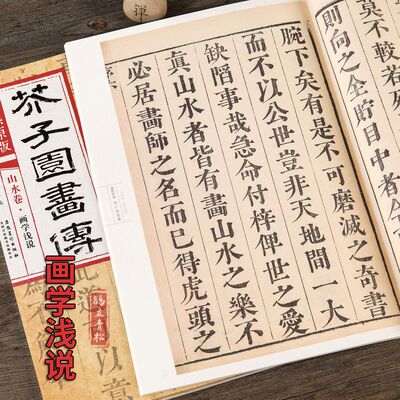 莫不較若
則向之全貯目中者
腕下矣有是不可磨滅之奇書
而不以公世豈非天地間一大
缺陷事哉急命付梓俾世之愛
真山水者皆有畫山水之樂不
必居畫師之名而已得虎頭之
原版
芥子園畫傳
山水卷·画学浅说
画学浅说